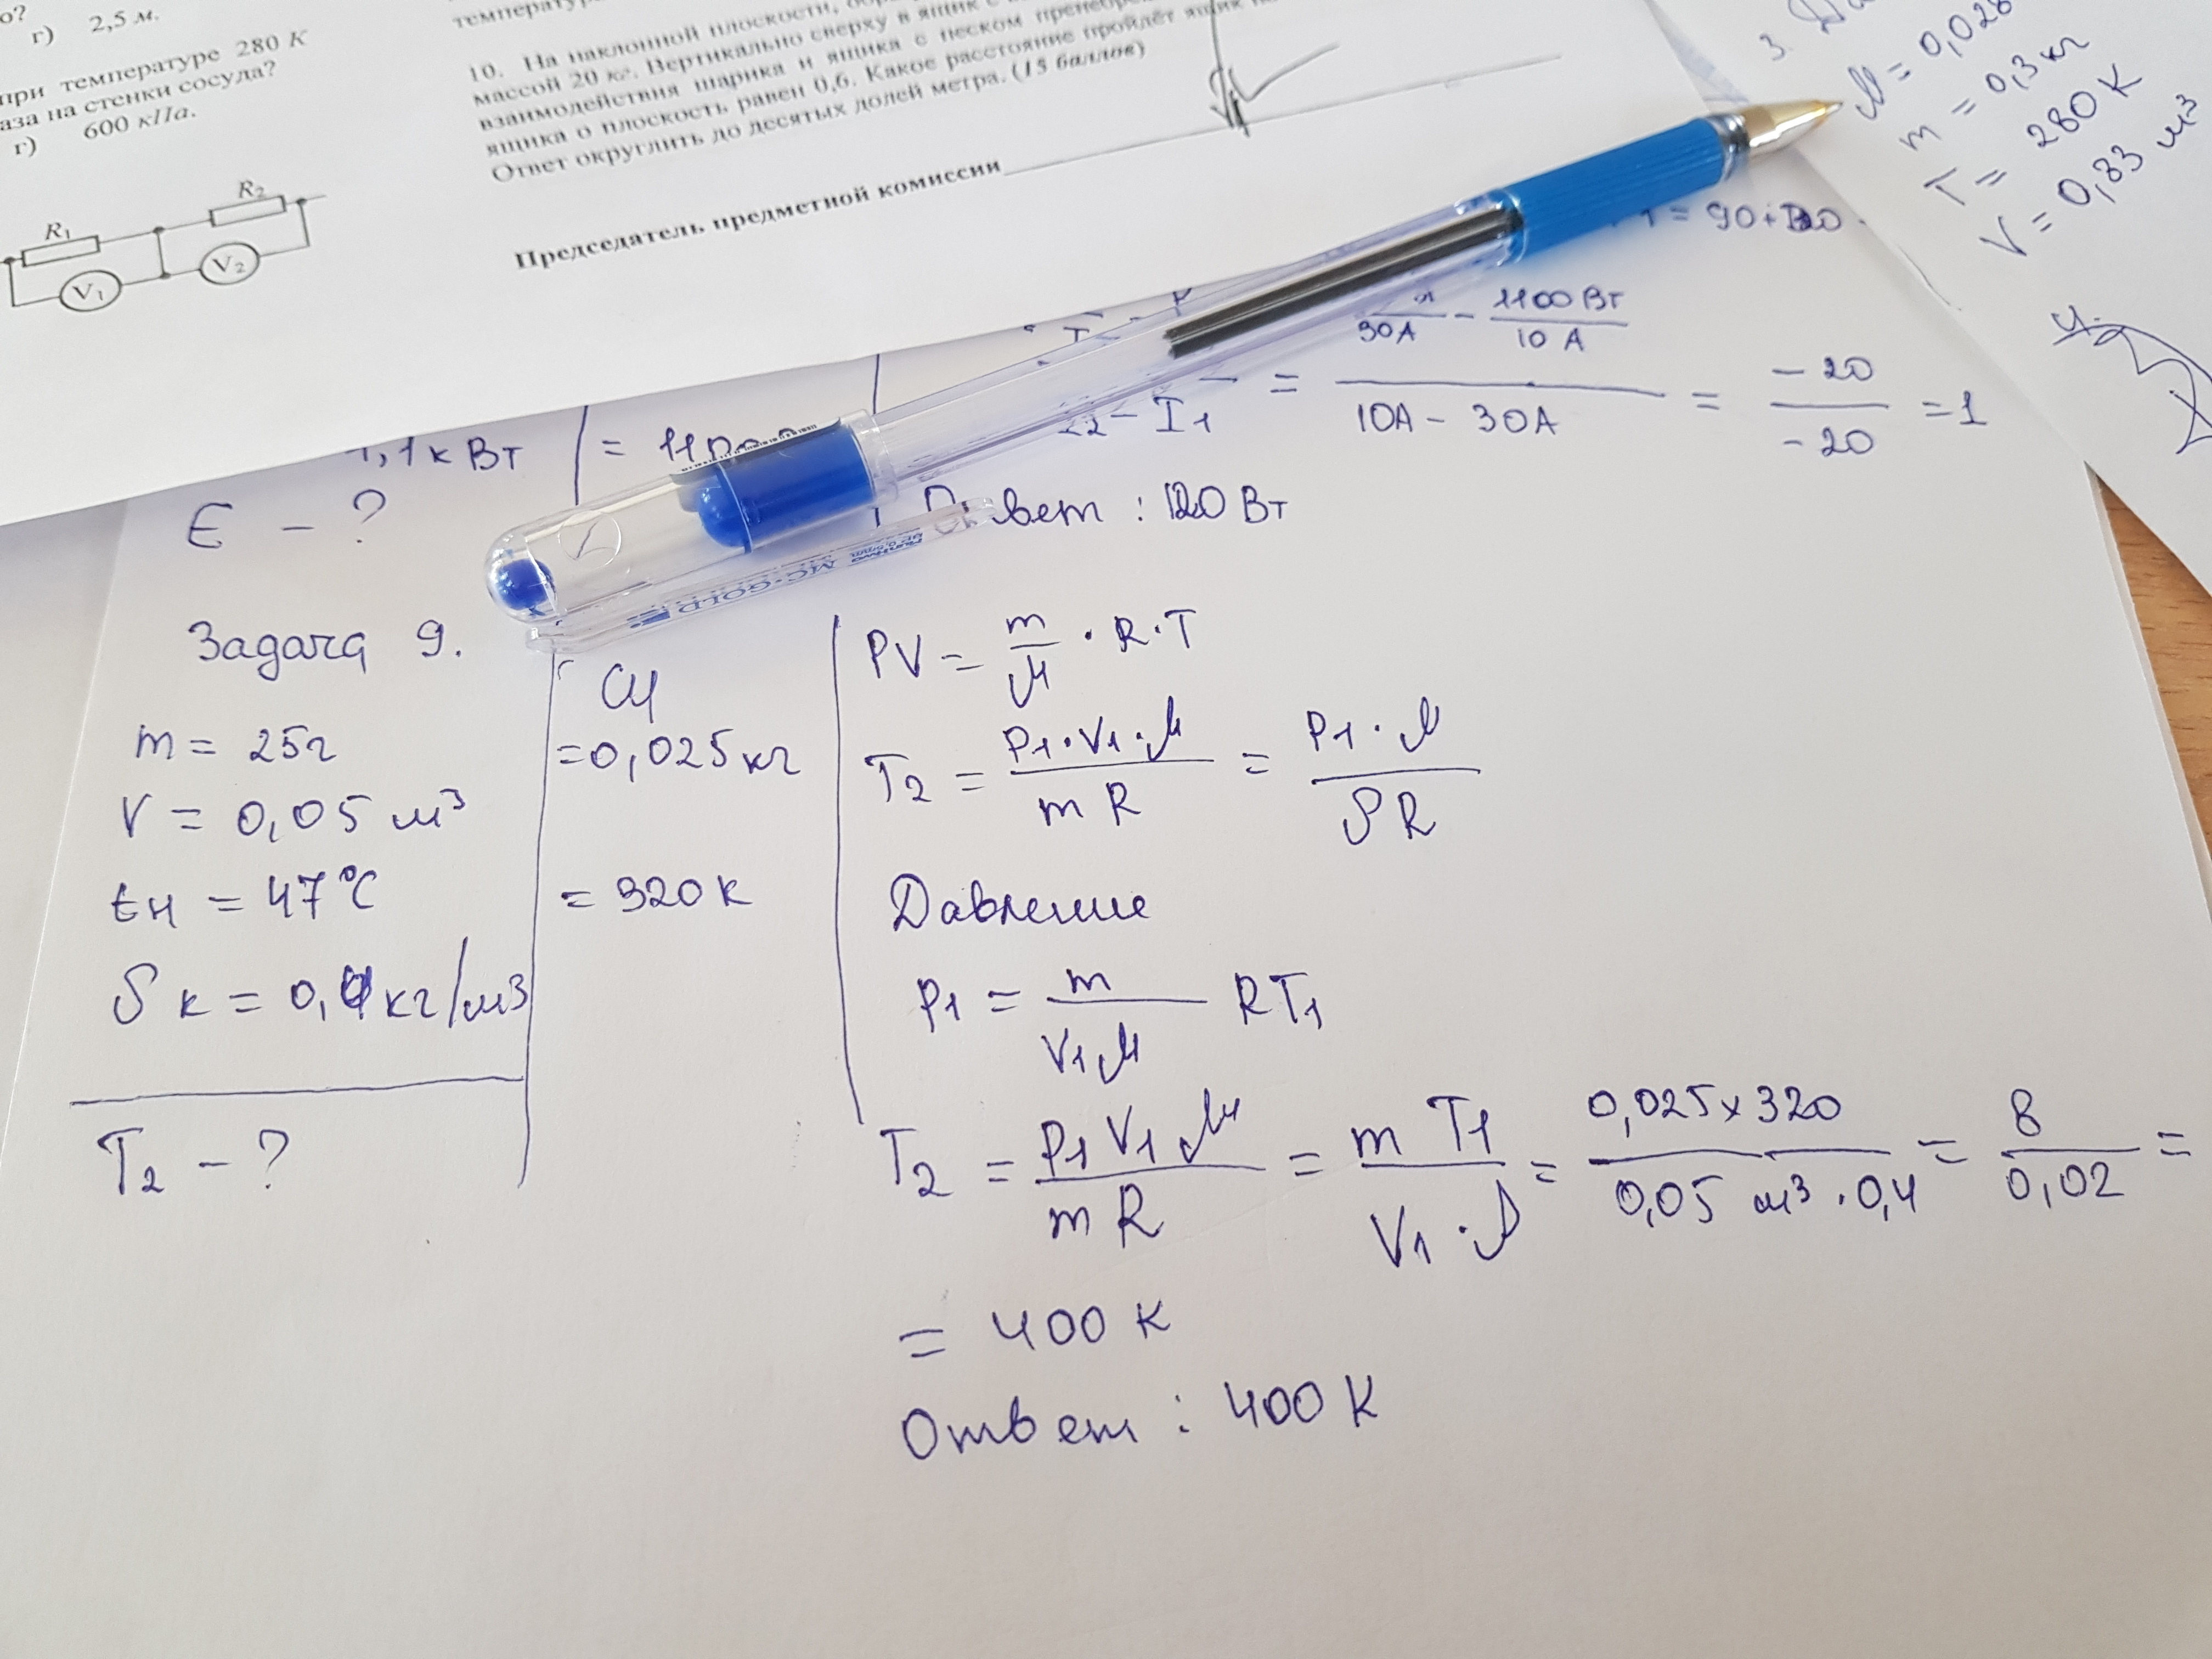 г) 2,5 м.
при температуре 280 К
газа на стенки сосуда?
г) 600 кПа.
R₁
R₂
V₁
V₂
10. На наклонной плоскости,
массой 20 кг. Вертикально сверху в ящик с
взаимодействия шарика и ящика с песком
ящика о плоскость равен 0,6. Какое расстояние пройдёт ящик
Ответ округлить до десятых долей метра. (15 баллов)
Председатель предметной комиссии
3.
m = 0,3 кг
T = 280 К
V = 0,83 м³
4.
1100 Вт
30А - 10 А
- I₁ = 10А - 30А = -20 / -20 = 1
1,1 кВт
Ответ : 120 Вт
Е - ?
MC-GOLD
Задача 9.
СИ
m = 25г = 0,025 кг
V = 0,05 м³
tн = 47°С = 320 К
ρк = 0,4 кг/м³
T₂ - ?
PV = m/М · R · T
T₂ = P₁ · V₁ · М / m R = P₁ · М / ρ R
Давление
P₁ = m / V₁ М RT₁
T₂ = P₁ V₁ М / m R = m T₁ / V₁ · ρ = 0,025 x 320 / 0,05 м³ · 0,4 = 8 / 0,02 =
= 400 К
Ответ : 400 К